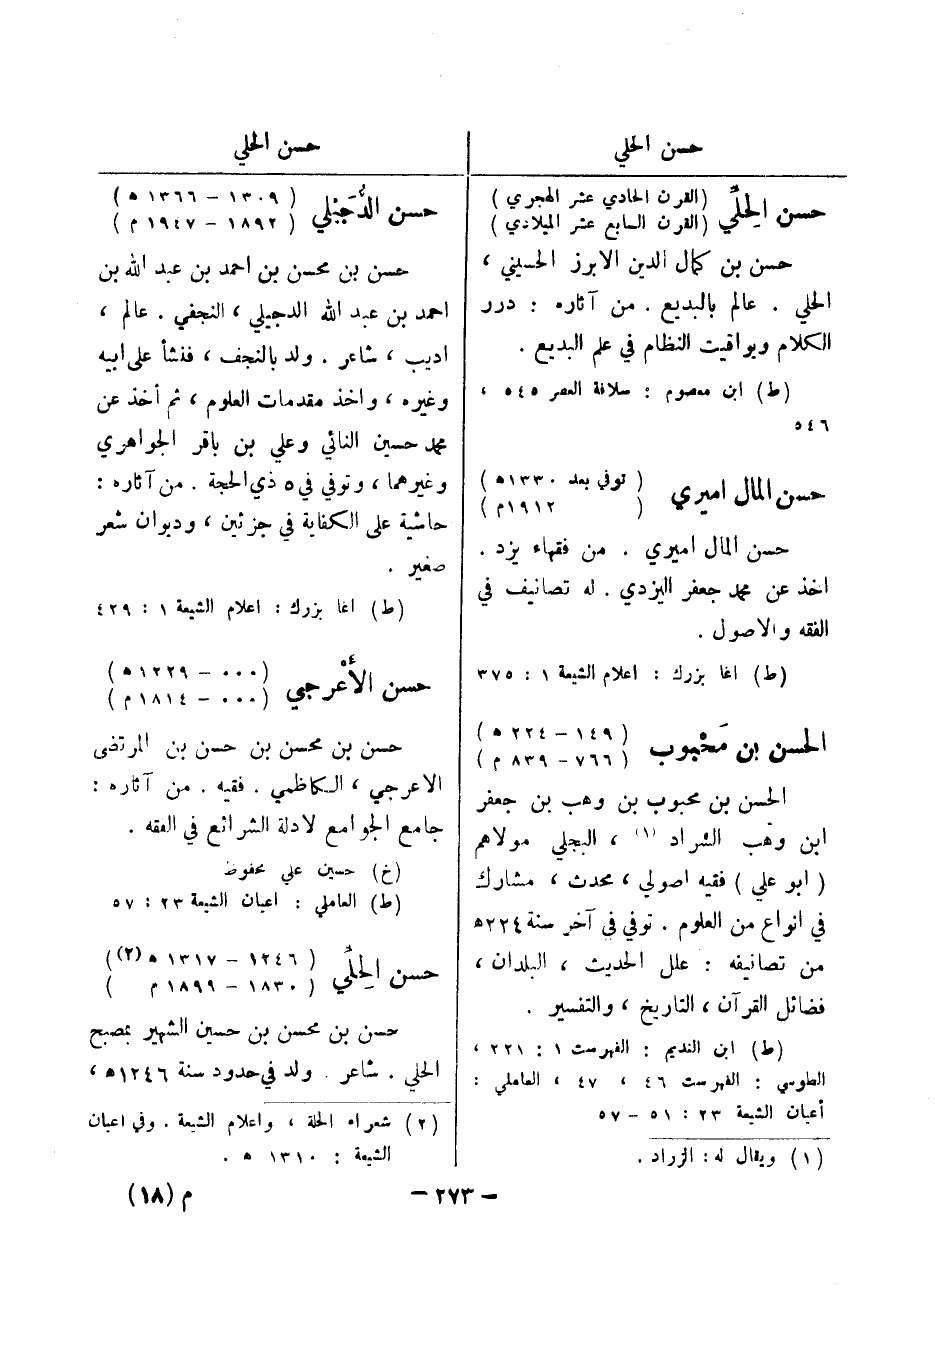 حسن الحلي
حسن الحِلّي (القرن الحادي عشر الهجري)
(القرن السابع عشر الميلادي)
حسن بن كمال الدين الابرز الحسيني ،
الحلي . عالم بالبديع . من آثاره : درر
الكلام ويواقيت النظام في علم البديع .
(ط) ابن معصوم : سلافة العصر ٥٤٥ ،
٥٤٦
حسن المال اميري (توفي بعد ١٣٣٠ه)
(١٩١٢م)
حسن المال اميري . من فقهاء يزد .
اخذ عن محمد جعفر اليزدي . له تصانيف في
الفقه والاصول .
(ط) اغا بزرك : اعلام الشيعة ١ : ٣٧٥
الحسن بن مَحْبوب (١٤٩ – ٢٢٤ ه)
(٧٦٦ – ٨٣٩ م)
الحسن بن محبوب بن وهب بن جعفر
ابن وهب الشراد (١) ، البجلي مولاهم
(ابو علي) فقيه اصولي ، محدث ، مشارك
في انواع من العلوم . توفي في آخر سنة ٢٢٤ه
من تصانيفه : علل الحديث ، البلدان ،
فضائل القرآن ، التاريخ ، والتفسير .
(ط) ابن النديم : الفهرست ١ : ٢٢١ ،
الطوسي : الفهرست ٤٦ ، ٤٧ ، العاملي :
أعيان الشيعة ٢٣ : ٥١ – ٥٧
(١) ويقال له : الزراد .
حسن الحلي
حسن الدُّجَيْلي (١٣٠٩ – ١٣٦٦ ه)
(١٨٩٢ – ١٩٤٧ م)
حسن بن محسن بن احمد بن عبد الله بن
احمد بن عبد الله الدجيلي ، النجفي . عالم ،
اديب ، شاعر . ولد بالنجف ، فنشأ على ابيه
وغيره ، واخذ مقدمات العلوم ، ثم أخذ عن
محمد حسين النائي وعلي بن باقر الجواهري
وغيرهما ، وتوفي في ٥ ذي الحجة . من آثاره :
حاشية على الكفاية في جزئين ، وديوان شعر
صغير .
(ط) اغا بزرك : اعلام الشيعة ١ : ٤٢٩
حسن الأعرجي (٠٠٠ – ١٢٢٩ه)
(٠٠٠ – ١٨١٤م)
حسن بن محسن بن حسن بن المرتضى
الاعرجي ، الكاظمي . فقيه . من آثاره :
جامع الجوامع لادلة الشرائع في الفقه .
(خ) حسين علي محفوظ
(ط) العاملي : اعيان الشيعة ٢٣ : ٥٧
حسن الحِلّي (١٢٤٦ – ١٣١٧ ه(٢))
(١٨٣٠ – ١٨٩٩ م)
حسن بن محسن بن حسين الشهير بمصبح
الحلي . شاعر . ولد في حدود سنة ١٢٤٦ه ،
(٢) شعراء الحلة ، واعلام الشيعة . وفي اعيان
الشيعة : ١٣١٠ ه .
– ٢٧٣ –
م (١٨)